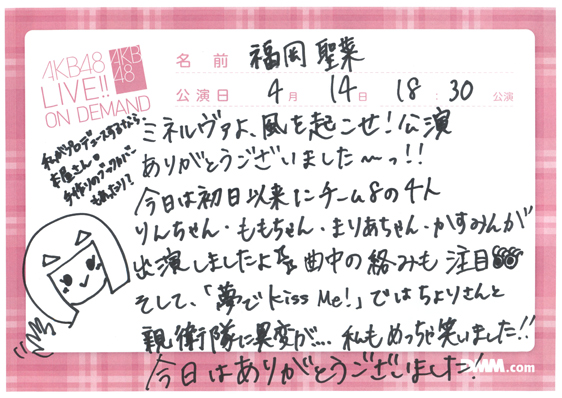 AKB48
LIVE!!
ON DEMAND
AKB
48
名前 福岡聖菜
公演日 4月 14日 18:30 公演
私がプロデュースするなら
本屋さん。
手作りのブックカバー
もれたり?
ミネルヴァよ、風を起こせ!公演
ありがとうございました〜っ!!
今日は初日以来にチーム8の4人
りんちゃん・ももちゃん・まりあちゃん・かすみんが
出演しましたよ 曲中の絡みも注目
そして、「夢でKiss Me!」ではちよりさんと
親衛隊に異変が… 私もめっちゃ笑いました!!
今日はありがとうございました!
DMM.com